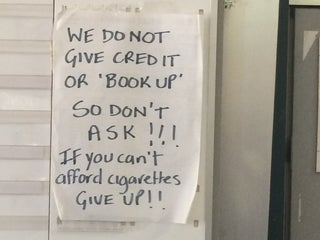 WE DO NOT
GIVE CREDIT
OR 'BOOK UP'
SO DON'T
ASK !!!
IF you can't
afford cigarettes
GIVE UP!!